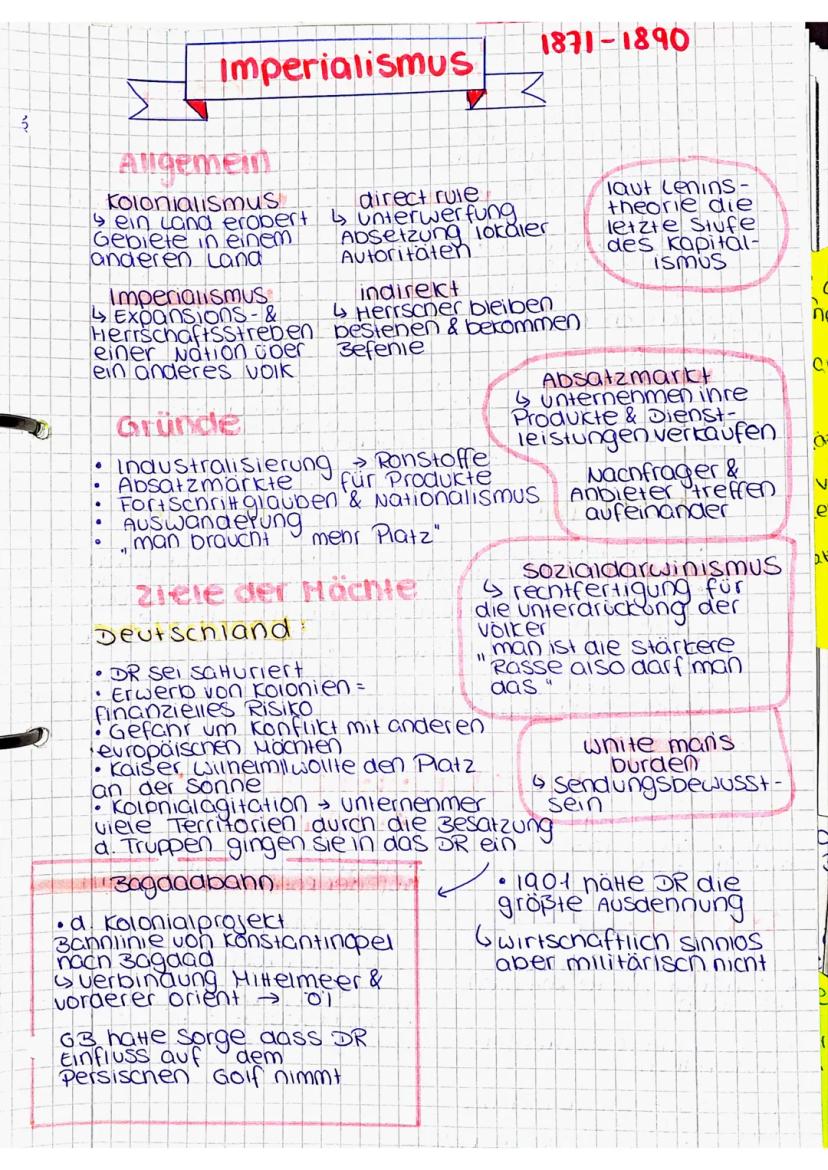 Imperialismus
1871-1890
Allgemein
Kolonialismus
↳ ein Land erobert
Gebiete in einem
anderen Land
direct rule
↳ unterwerfung
Absetzung lokaler
Autoritäten
laut Lenins-
theorie die
letzte Stufe
des Kapital-
ismus
Imperialismus
↳ Expansions- &
Herrschaftsstreben
einer Nation über
ein anderes Volk
indirekt
↳ Herrscher bleiben
bestehen & bekommen
Befehle
Absatzmarkt
↳ unternehmen ihre
Produkte & Dienst-
leistungen verkaufen
Nachfrager &
Anbieter treffen
aufeinander
Gründe
• Industralisierung → Rohstoffe
• Absatzmärkte für Produkte
• Fortschrittglauben & Nationalismus
• Auswanderung
• „man braucht mehr Platz"
Sozialdarwinismus
↳ rechtfertigung für
die unterdrückung der
völker
"man ist die stärkere
Rasse also darf man
das"
Ziele der Mächte
Deutschland:
• DR sei satturiert
• Erwerb von Kolonien =
finanzielles Risiko
• Gefahr um Konflikt mit anderen
europäischen Mächten
• Kaiser Wilhelm II wollte den Platz
an der Sonne
• Kolonialagitation → unternehmer
viele Territorien durch die Besatzung
d. Truppen gingen sie in das DR ein
white man's
burden
↳ Sendungsbewusst-
sein
Bagdadbahn
• d. Kolonialprojekt
Bahnlinie von Konstantinopel
nach Bagdad
↳ verbindung Mittelmeer &
vorderer orient → Öl
GB hatte Sorge dass DR
Einfluss auf dem
Persischen Golf nimmt
• 1901 hatte DR die
größte Ausdehnung
↳ wirtschaftlich sinnlos
aber militärisch nicht